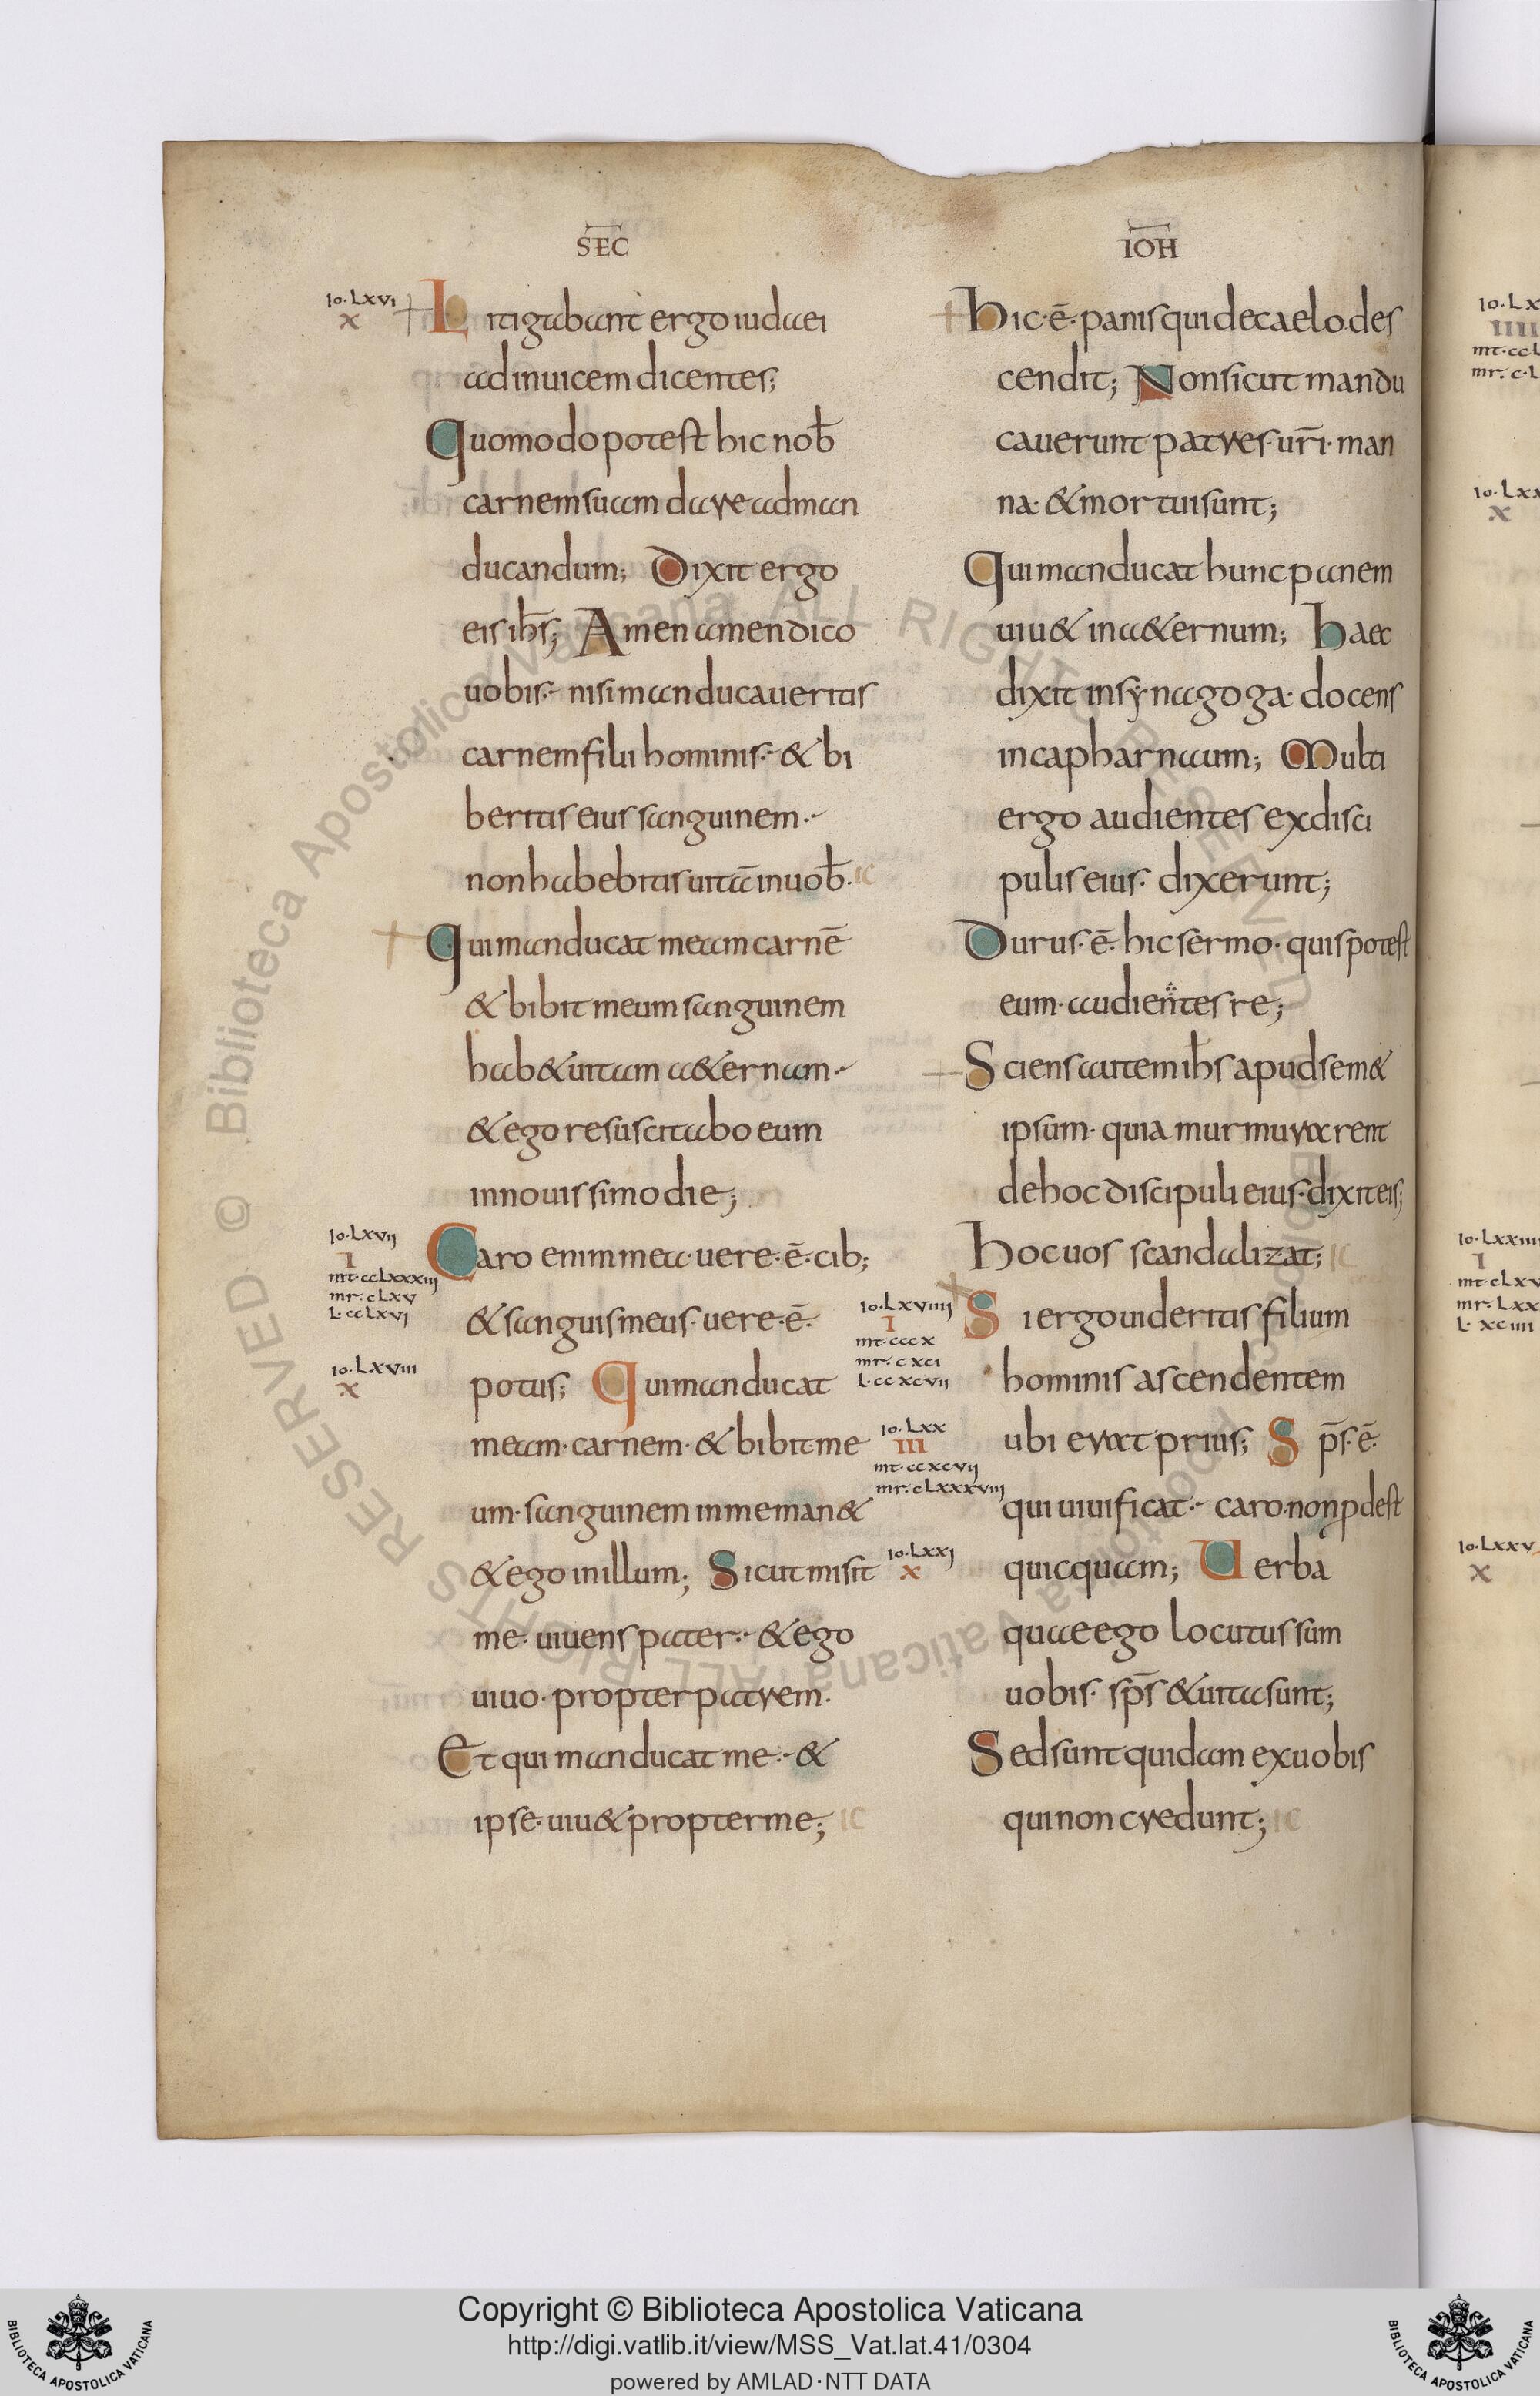 SEC̅
IO̅H
Io·Lxvi
x
Litigabant ergo iudaei
ad inuicem dicentes;
Quomodo potest hic nob̅
carnem suam dare ad man
ducandum; Dixit ergo
eis ih̅s; Amen amen dico
uobis·- nisi manducaueritis
carnem filii hominis·- & bi
beritis eius sanguinem·-
non habebitis uita̅ in uob̅· IC
Qui manducat meam carne̅
& bibit meum sanguinem
hab& uitam a&ernam·-
& ego resuscitabo eum
in nouissimo die;
Io·Lxvii
I
mt·ccLxxxiii
mr·cLxv
L·ccLxvi
Caro enim mea· uere· e̅· cib;
& sanguis meus· uere· e̅·
Io·Lxviii
x
potus; Qui manducat
meam· carnem· & bibit· me
um· sanguinem in me man&
& ego in illum; Sicut misit
me· uiuens pater·- & ego
uiuo· propter patrem·
Et qui manducat me·- &
ipse· uiu& propter me; IC
Hic· e̅· panis qui de caelo· des
cendit; Non sicut mandu
cauerunt patres· ur̅i· man
na· & mortui sunt;
Qui manducat hunc panem
uiu& in a&ernum; Haec
dixit in synagoga· docens
in capharnaum; Multi
ergo audientes ex disci
pulis eius· dixerunt;
Durus· e̅· hic sermo· quis potest
eum· audientes re;
Sciens autem ih̅s apud sem&
ipsum· quia murmurarent
de hoc discipuli eius· dixit eis;
Hoc uos scandalizat; IC
Io·Lxviiii
I
mt·cccx
mr·cxci
L·ccxcvii
Si ergo uideritis filium
hominis ascendentem
Io·Lxx
III
mt·ccxcvii
mr·cLxxxviii
ubi erat prius; S p̅s· e̅·
qui uiuificat·- caro· non pdest
Io·Lxxi
x
quicquam; Uerba
quae ego locutus sum
uobis· sp̅s & uita sunt;
Sed sunt quidam ex uobis
qui non credunt; IC
Io·Lx
IIII
mt·ccL
mr·c·L
Io·Lxx
x
Io·Lxxiiii
I
mt·cLxv
mr·Lxx
L·xciiii
Io·Lxxv
x
© Biblioteca Apostolica Vaticana ALL RIGHTS RESERVED
© Biblioteca Apostolica Vaticana ALL RIGHTS RESERVED
Copyright © Biblioteca Apostolica Vaticana
http://digi.vatlib.it/view/MSS_Vat.lat.41/0304
powered by AMLAD·NTT DATA
BIBLIOTECA APOSTOLICA VATICANA
BIBLIOTECA APOSTOLICA VATICANA